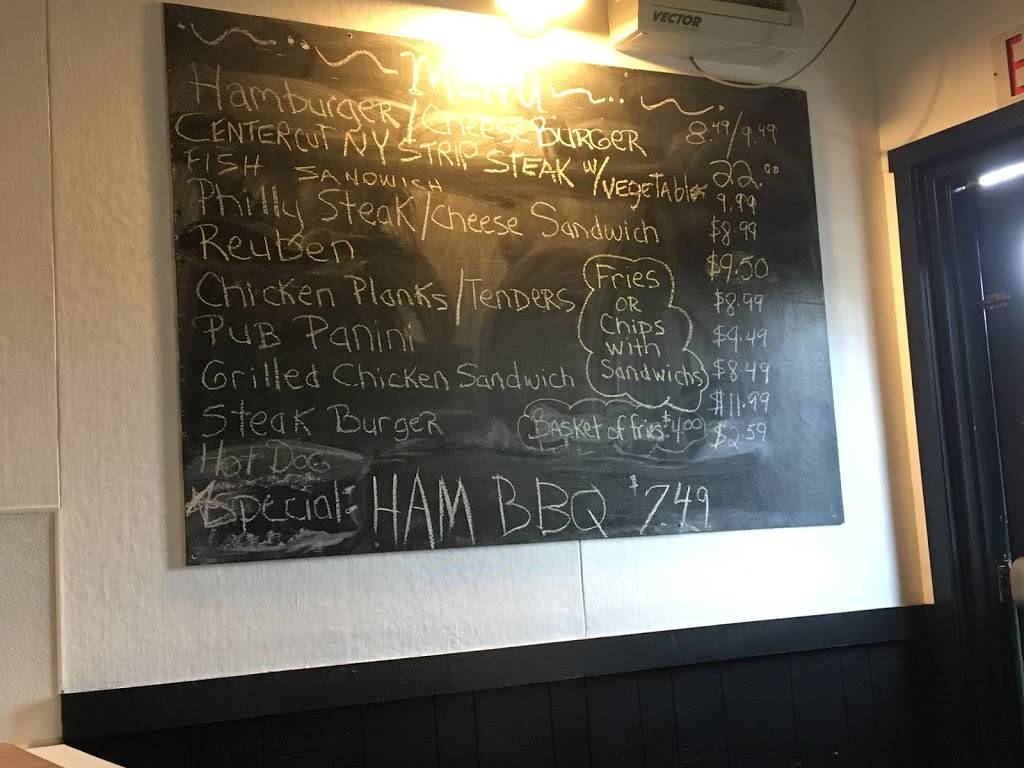 VECTOR
MENU
Hamburger/CheeseBURGER 8.49/9.49
CENTERCUT NY STRIP STEAK W/VEGETABLES 22.00
FISH SANDWICH 9.99
Philly Steak/Cheese Sandwich $8.99
Reuben $9.50
Chicken Planks/TENDERS $8.99
Pub Panini $4.49
Grilled Chicken Sandwich $8.49
Steak Burger $11.99
Hot Dog $2.59
Fries
OR
Chips
with
Sandwichs
Basket of fries $4.00
Special: HAM BBQ $7.49
E